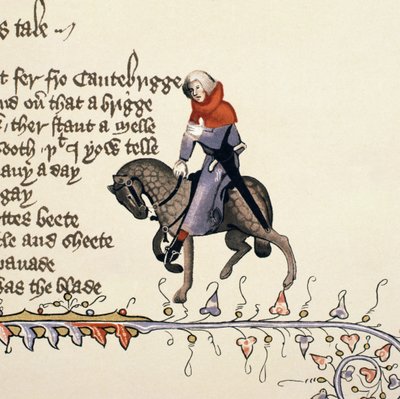 s tale
t fer fro Cantebrigge
nd ou that a brigge
ther stant a Melle
ooth þt I yow telle
any a day
gay
ttes beete
tle and sheete
panade
as the blade